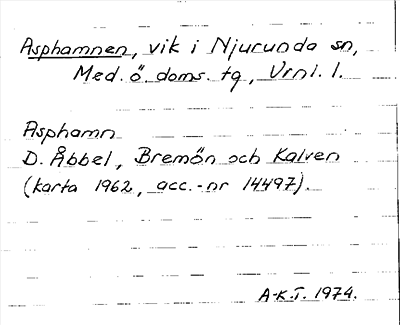 Asphamnen, vik i Njurunda sn,
Med. ö. doms. tg, Vrnl. l.
Asphamn
D. Åbbel, Bremön och Kalven
(karta 1962, acc.-nr 14497).
A-K.T. 1974.